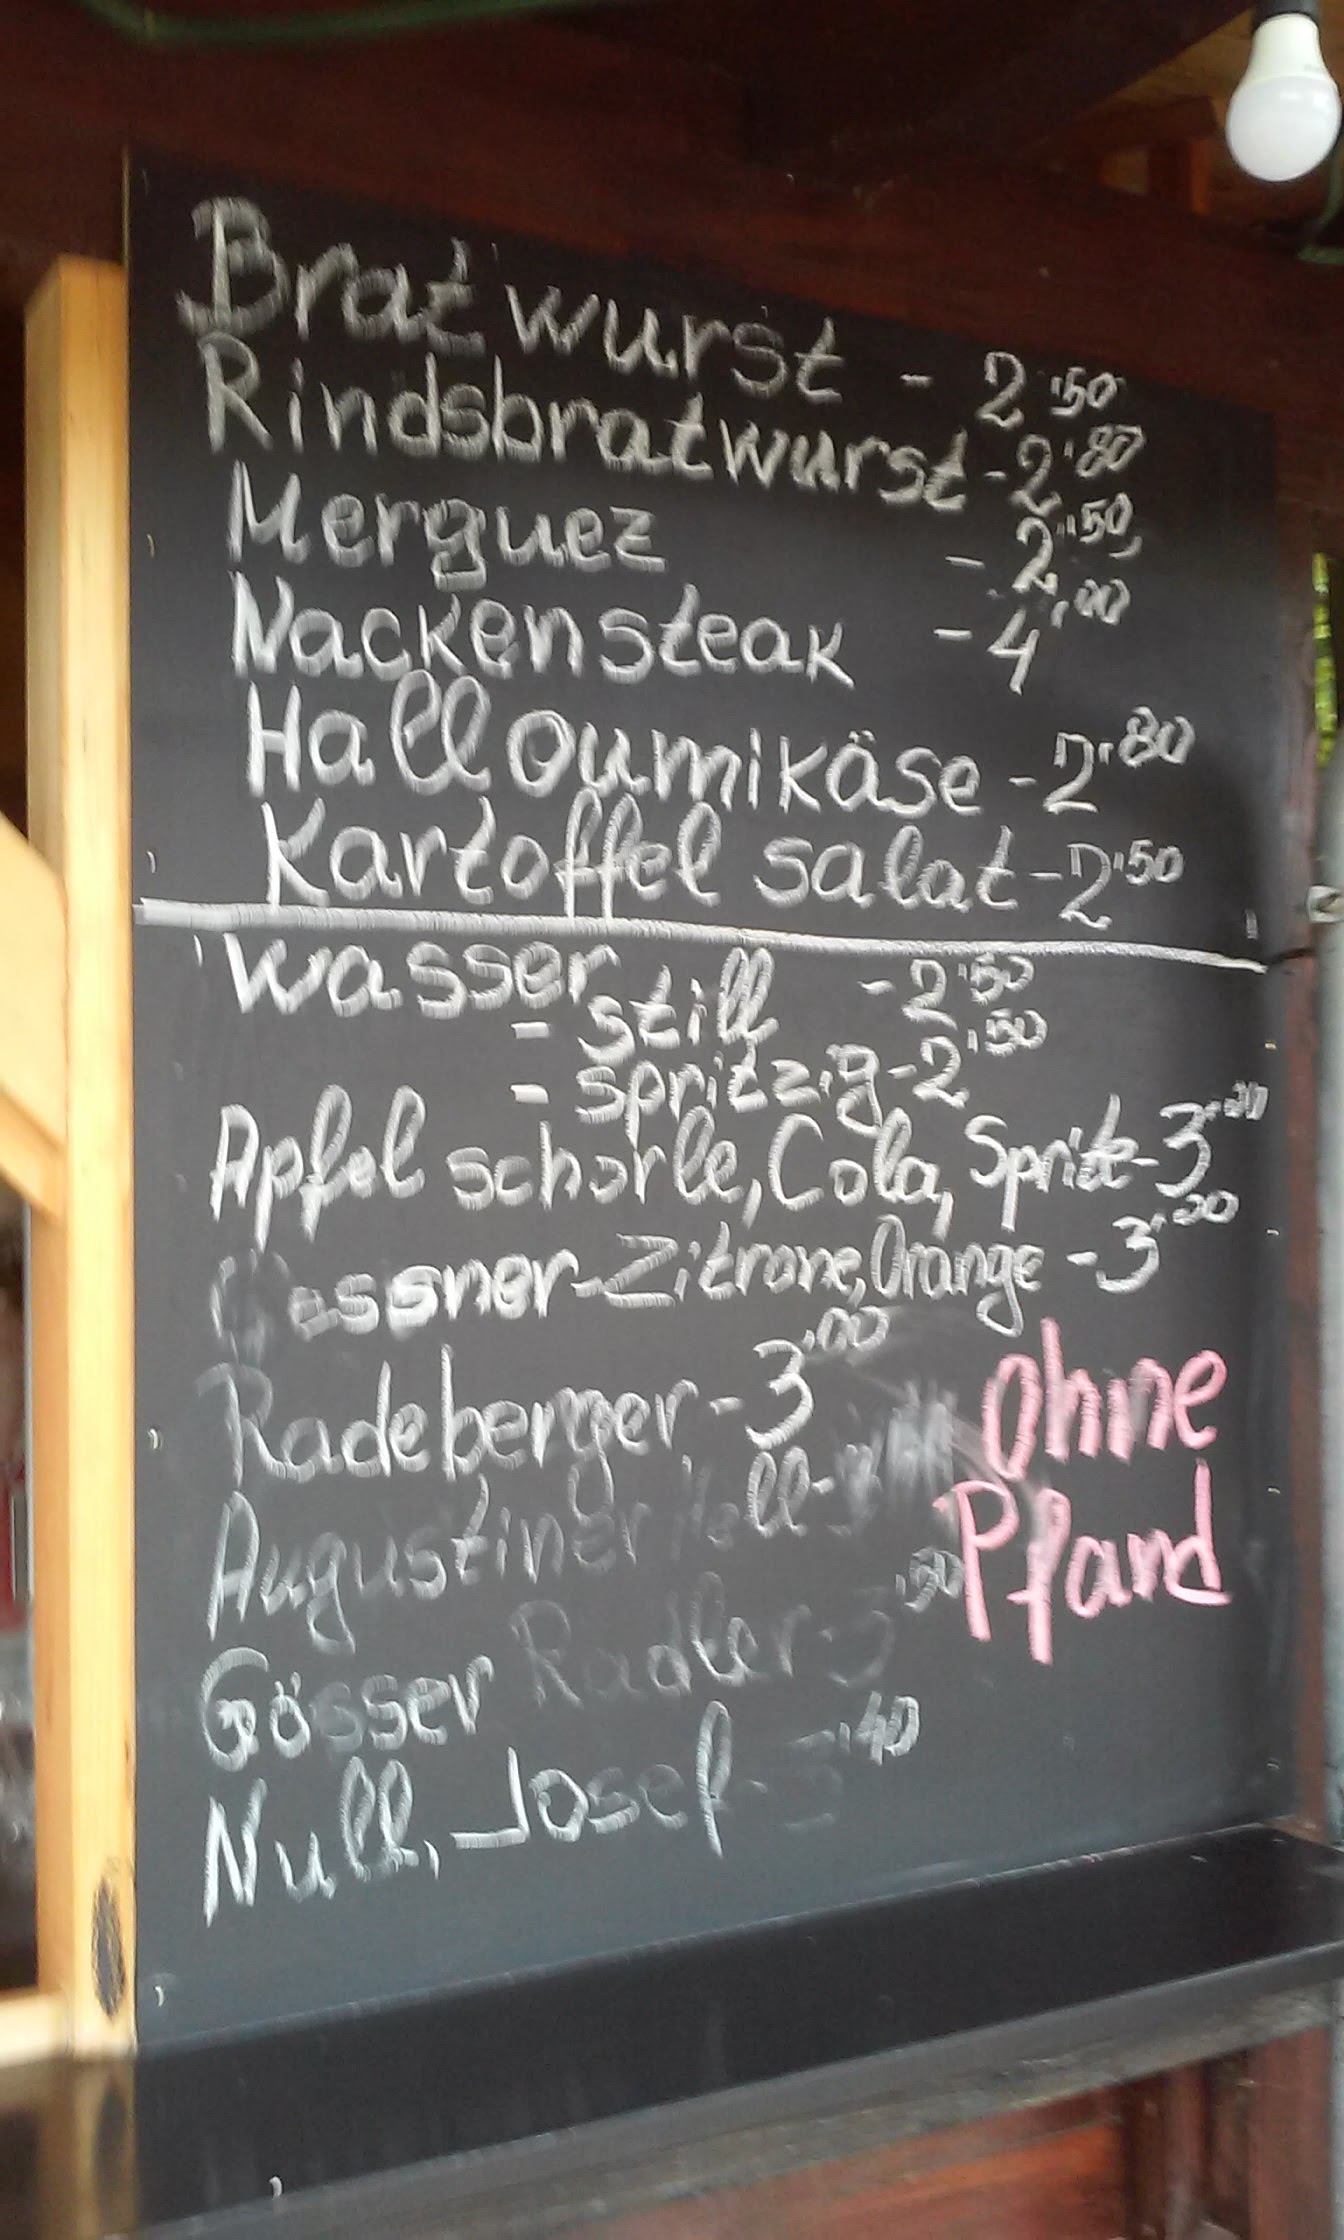 Bratwurst - 2,50
Rindsbratwurst - 2,80
Merguez - 2,50
Nackensteak - 4,00
Halloumikäse - 2,80
Kartoffelsalat - 2,50
Wasser
- still - 2,50
- spritzig - 2,50
Apfelschorle, Cola, Sprite - 3,20
Zitrone, Orange - 3,20
Radeberger - 3,00
Augustiner Hell -
Gösser Radler - 3,50
Null, Josef - 3,40
ohne
Pfand